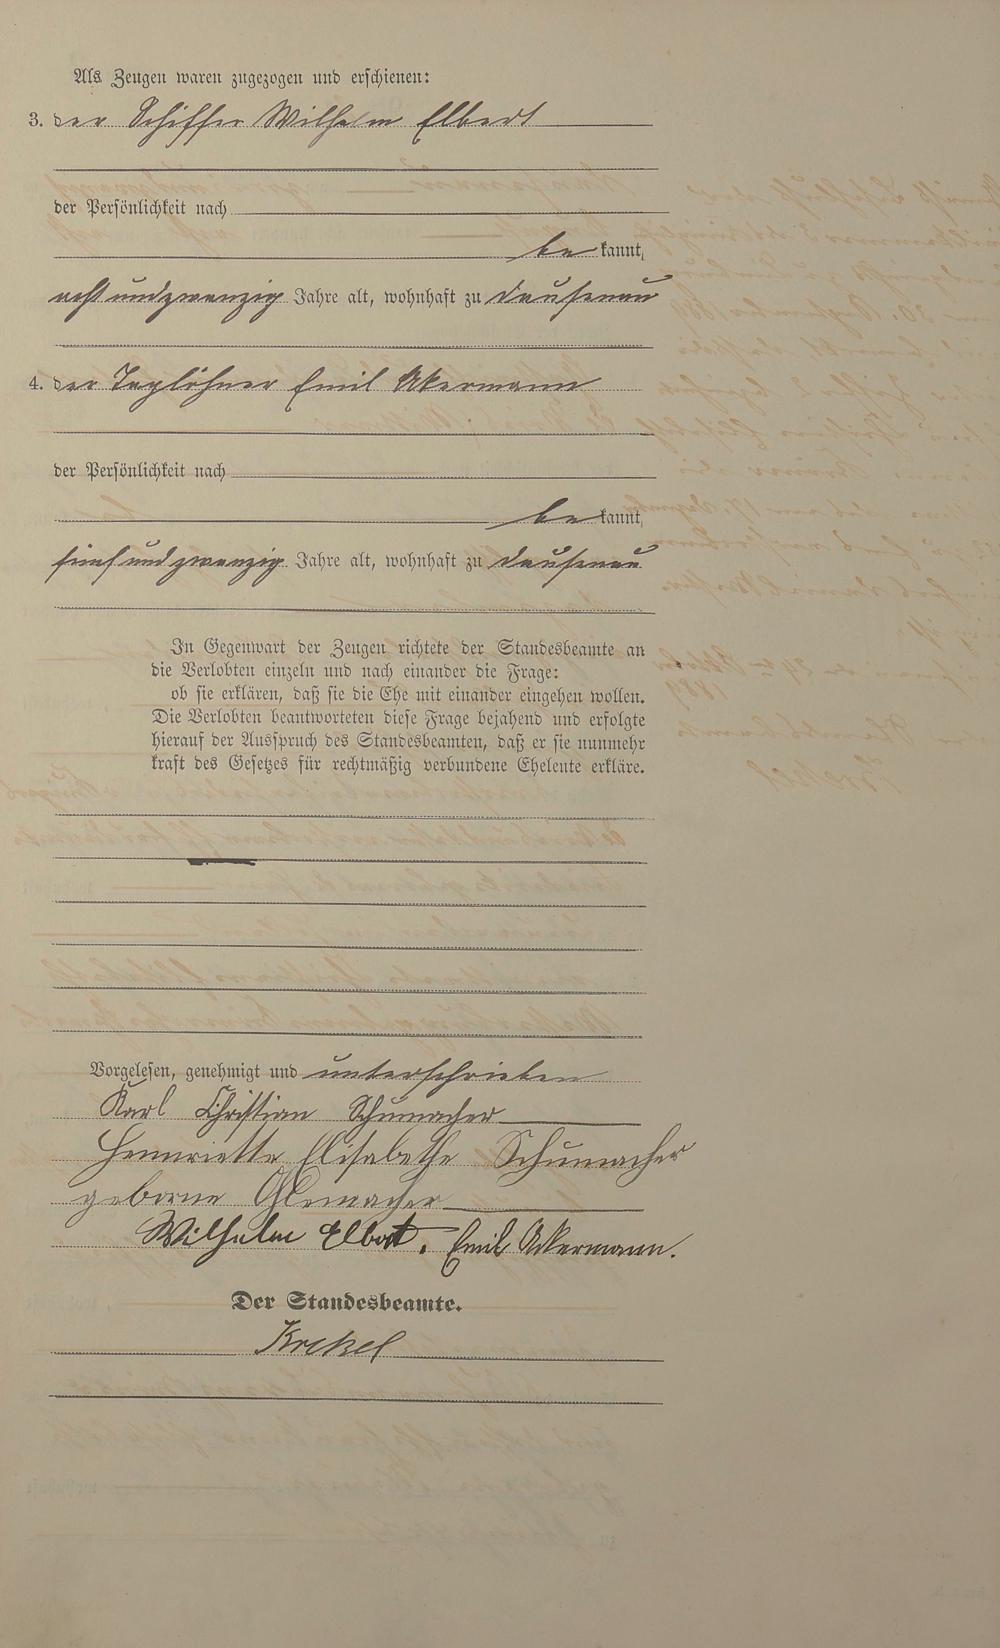 Als Zeugen waren zugezogen und erschienen:
3. der Schiffer Wilhelm Elbert
der Persönlichkeit nach
be kannt,
acht und zwanzig Jahre alt, wohnhaft zu Dausenau
4. der Taglöhner Emil Akermann
der Persönlichkeit nach
be kannt,
fünf und zwanzig Jahre alt, wohnhaft zu Dausenau
In Gegenwart der Zeugen richtete der Standesbeamte an
die Verlobten einzeln und nach einander die Frage:
ob sie erklären, daß sie die Ehe mit einander eingehen wollen.
Die Verlobten beantworteten diese Frage bejahend und erfolgte
hierauf der Ausspruch des Standesbeamten, daß er sie nunmehr
kraft des Gesetzes für rechtmäßig verbundene Eheleute erkläre.
Vorgelesen, genehmigt und unterschrieben
Karl Christian Schumacher
Hennriette Elisabethe Schumacher
geborne Ohlemacher
Wilhelm Elbert. Emil Ackermann.
Der Standesbeamte.
Krekel